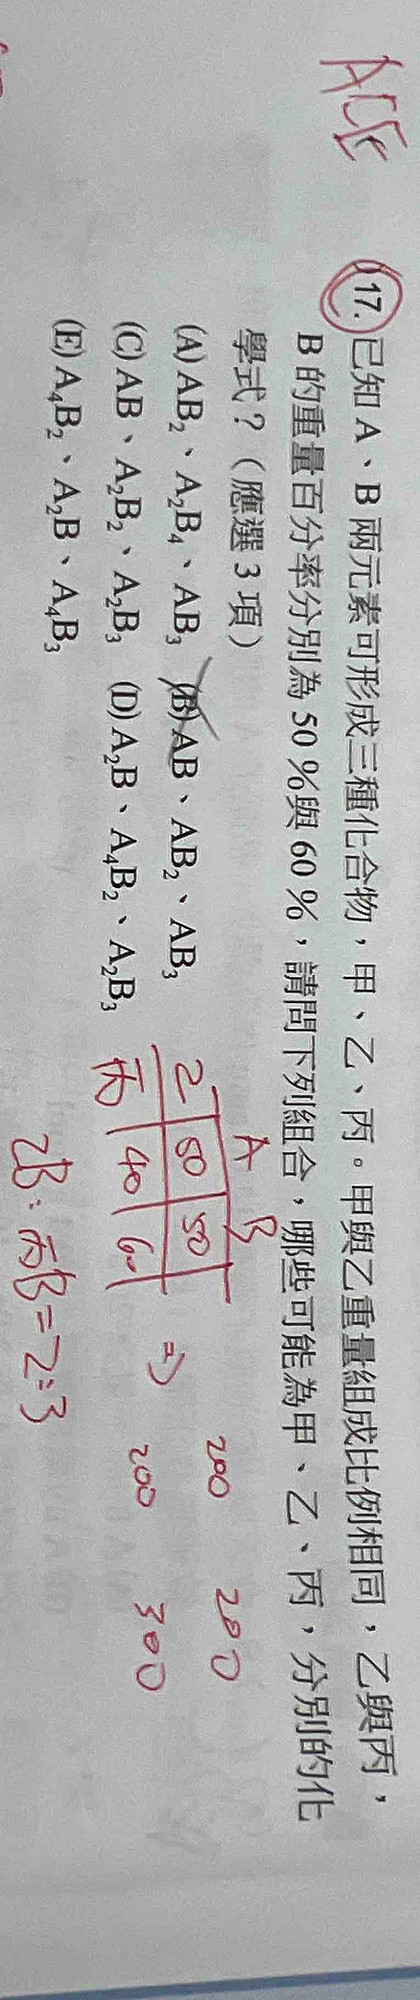 ACE
17. 已知 A、B 兩元素可形成三種化合物,甲、乙、丙。甲與乙重量組成比例相同,乙與丙,
B 的重量百分率分別為 50 %與 60 %,請問下列組合,哪些可能為甲、乙、丙,分別的化
學式?(應選 3 項)
(A) AB₂、A₂B₄、AB₃ (B) AB、AB₂、AB₃
(C) AB、A₂B₂、A₂B₃ (D) A₂B、A₄B₂、A₂B₃
(E) A₄B₂、A₂B、A₄B₃
A B
乙 50 50 200 200
丙 40 60 ⇒ 200 300
乙B:丙B=2:3